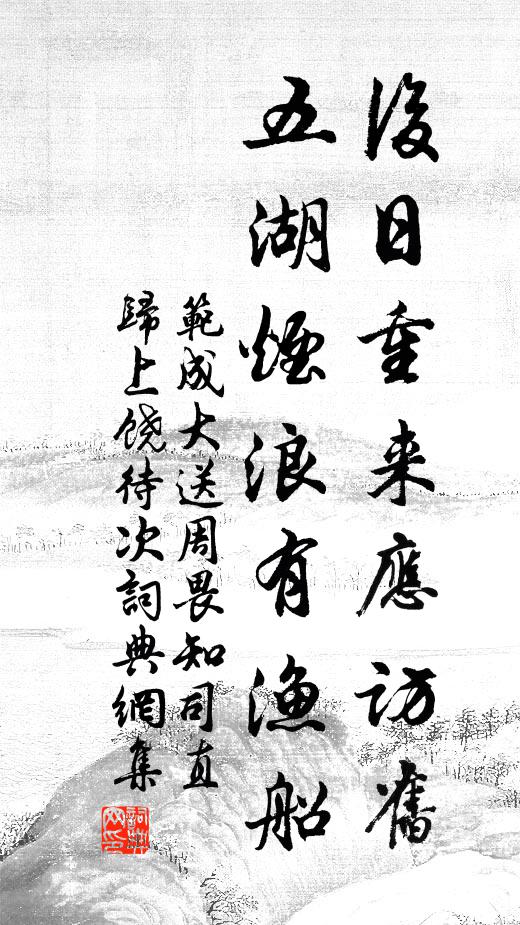 後日重来應訪舊
五湖煙浪有漁船
範成大送周畏知司直
歸上饒待次詞典網集
詞典網印